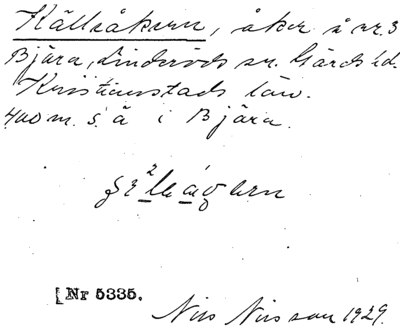 Källsåkern, åker å nr. 3
Bjära, Linderöds sn. Gärds hd.
Kristianstads län.
400 m. S. å i Bjära.
[Nr 5335.
Nils Nilsson 1929.